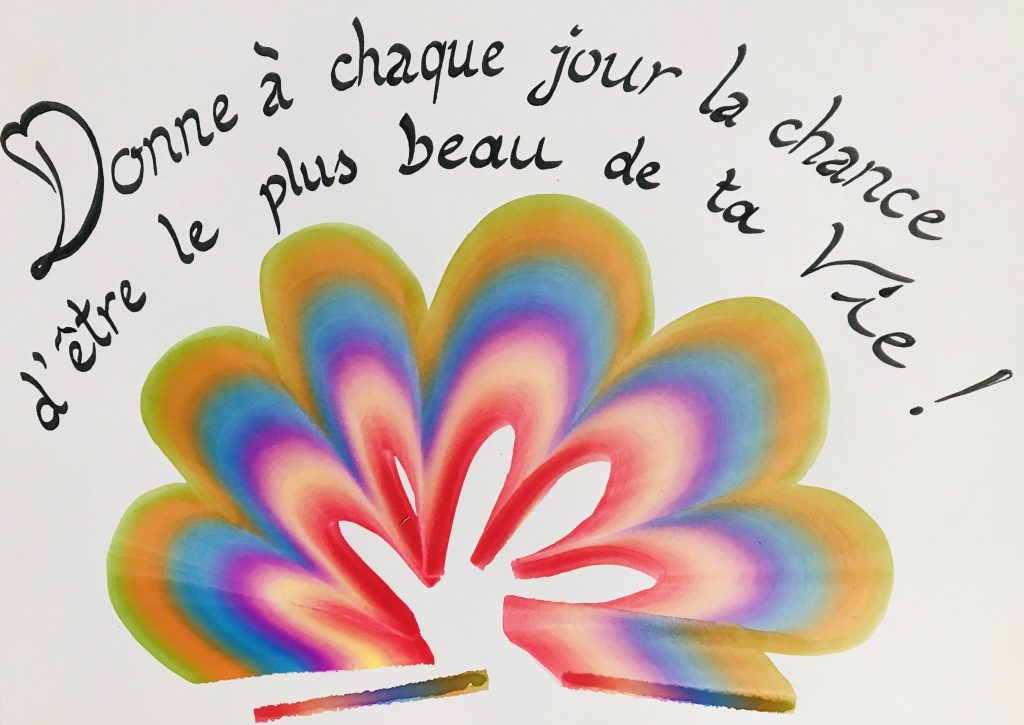 Donne à chaque jour la chance
d'être le plus beau de ta Vie !